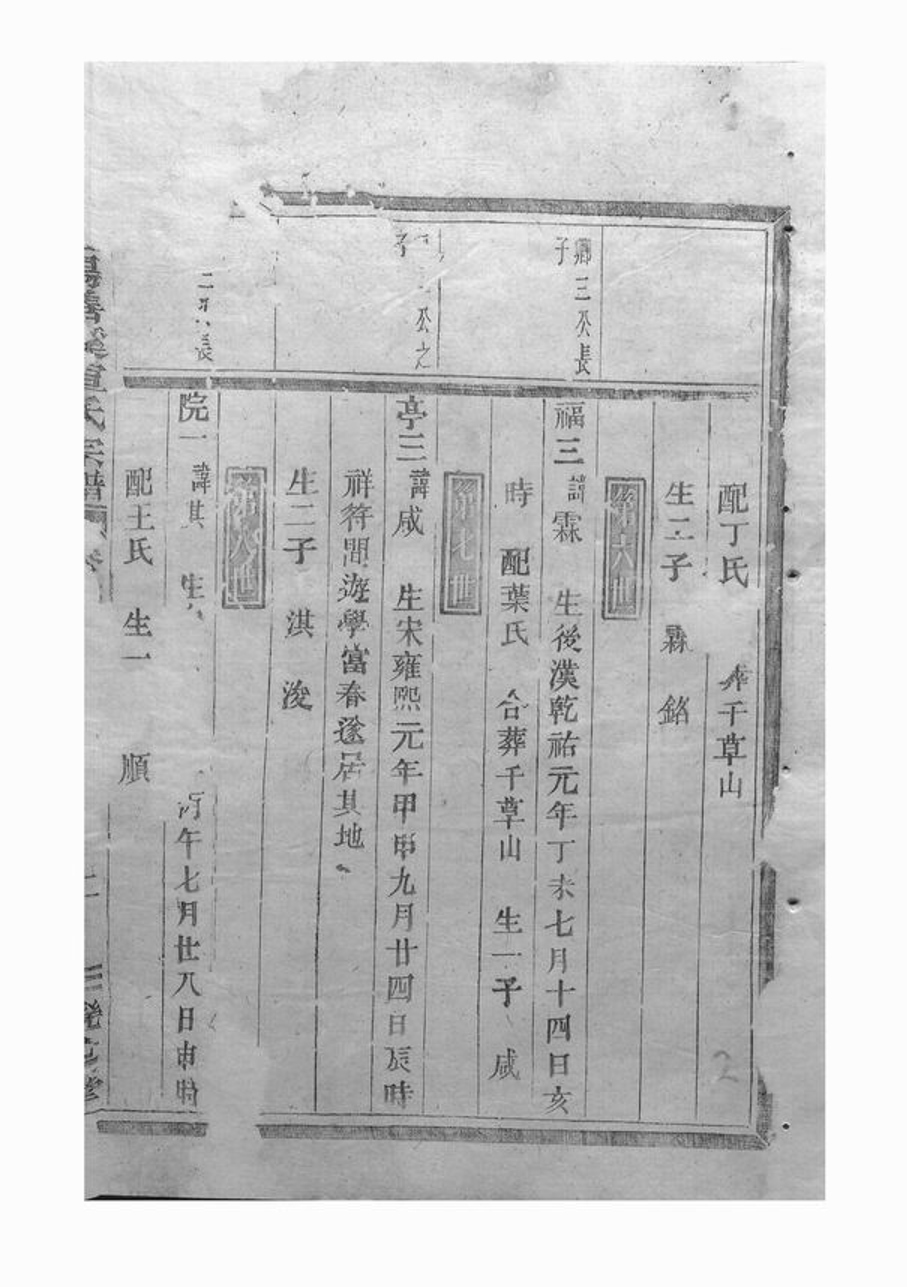 配丁氏 葬千草山
生二子 霖 銘
第六世
鄉三公長
子
福三 諱霖 生後漢乾祐元年丁未七月十四日亥
時 配葉氏 合葬千草山 生一子 咸
第七世
公之
子
亭三 諱咸 生宋雍熙元年甲申九月廿四日辰時
祥符間遊學富春遂居其地
生二子 淇 浚
第八世
長
院一 諱淇 生 丙午七月廿八日申時
配王氏 生一 順
氏宗譜 卷